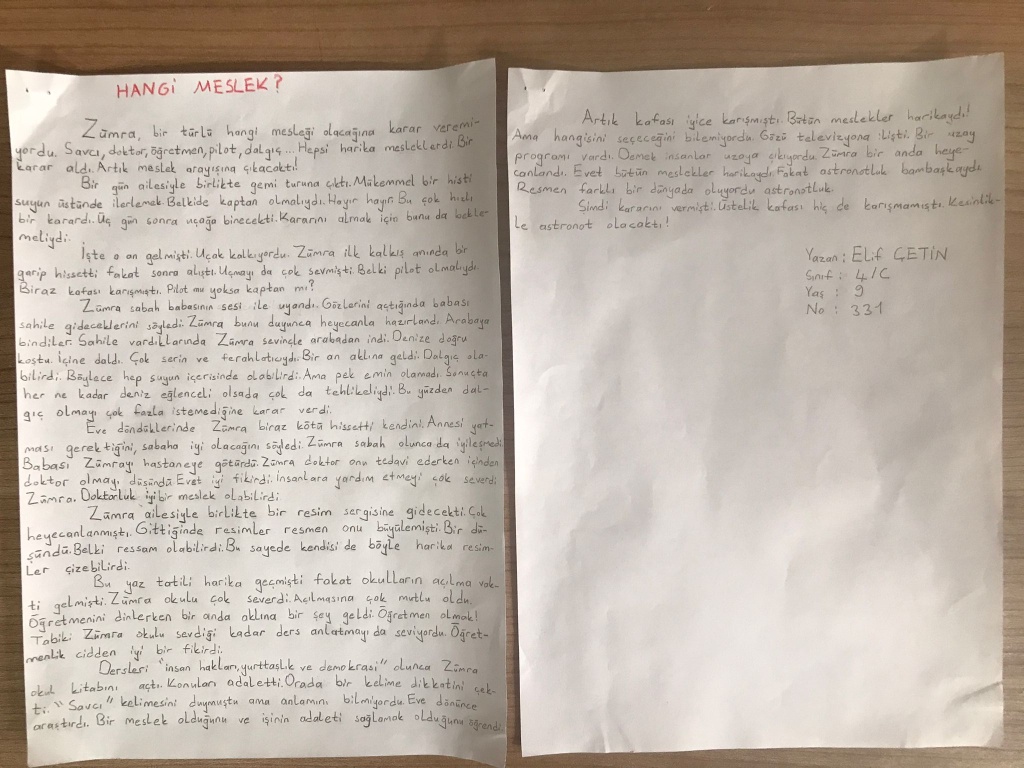 HANGİ MESLEK?
Zümra, bir türlü hangi mesleği olacağına karar veremi-
yordu. Savcı, doktor, öğretmen, pilot, dalgıç... Hepsi harika mesleklerdi. Bir
karar aldı. Artık meslek arayışına çıkacaktı!
Bir gün ailesiyle birlikte gemi turuna çıktı. Mükemmel bir histi
suyun üstünde ilerlemek. Belkide kaptan olmalıydı. Hayır hayır. Bu çok hızlı
bir karardı. Üç gün sonra uçağa binecekti. Kararını almak için bunu da bekle-
meliydi.
İşte o an gelmişti. Uçak kalkıyordu. Zümra ilk kalkış anında bir
garip hissetti fakat sonra alıştı. Uçmayı da çok sevmişti. Belki pilot olmalıydı.
Biraz kafası karışmıştı. Pilot mu yoksa kaptan mı?
Zümra sabah babasının sesi ile uyandı. Gözlerini açtığında babası
sahile gideceklerini söyledi. Zümra bunu duyunca heyecanla hazırlandı. Arabaya
bindiler. Sahile vardıklarında Zümra sevinçle arabadan indi. Denize doğru
koştu. İçine daldı. Çok serin ve ferahlatıcıydı. Bir an aklına geldi. Dalgıç ola-
bilirdi. Böylece hep suyun içerisinde olabilirdi. Ama pek emin olamadı. Sonuçta
her ne kadar deniz eğlenceli olsada çok da tehlikeliydi. Bu yüzden dal-
gıç olmayı çok fazla istemediğine karar verdi.
Eve döndüklerinde Zümra biraz kötü hissetti kendini. Annesi yat-
ması gerektiğini, sabaha iyi olacağını söyledi. Zümra sabah olunca da iyileşmedi.
Babası Zümrayı hastaneye götürdü. Zümra doktor onu tedavi ederken içinden
doktor olmayı düşündü. Evet iyi fikirdi. İnsanlara yardım etmeyi çok severdi
Zümra. Doktorluk iyi bir meslek olabilirdi.
Zümra ailesiyle birlikte bir resim sergisine gidecekti. Çok
heyecanlanmıştı. Gittiğinde resimler resmen onu büyülemişti. Bir dü-
şündü. Belki ressam olabilirdi. Bu sayede kendisi de böyle harika resim-
ler çizebilirdi.
Bu yaz tatili harika geçmişti fakat okulların açılma vak-
ti gelmişti. Zümra okulu çok severdi. Açılmasına çok mutlu oldu.
Öğretmenini dinlerken bir anda aklına bir şey geldi. Öğretmen olmak!
Tabiki Zümra okulu sevdiği kadar ders anlatmayı da seviyordu. Öğret-
menlik cidden iyi bir fikirdi.
Dersleri "insan hakları, yurttaşlık ve demokrasi" olunca Zümra
okul kitabını açtı. Konuları adaletti. Orada bir kelime dikkatini çek-
ti. "Savcı" kelimesini duymuştu ama anlamını bilmiyordu. Eve dönünce
araştırdı. Bir meslek olduğunu ve işinin adaleti sağlamak olduğunu öğrendi.
Artık kafası iyice karışmıştı. Bütün meslekler harikaydı!
Ama hangisini seçeceğini bilemiyordu. Gözü televizyona ilişti. Bir uzay
programı vardı. Demek insanlar uzaya çıkıyordu. Zümra bir anda heye-
canlandı. Evet bütün meslekler harikaydı. Fakat astronotluk bambaşkaydı.
Resmen farklı bir dünyada oluyordu astronotluk.
Şimdi kararını vermişti. Üstelik kafası hiç de karışmamıştı. Kesinlik-
le astronot olacaktı!
Yazan : Elif ÇETİN
Sınıf : 4/C
Yaş : 9
No : 331